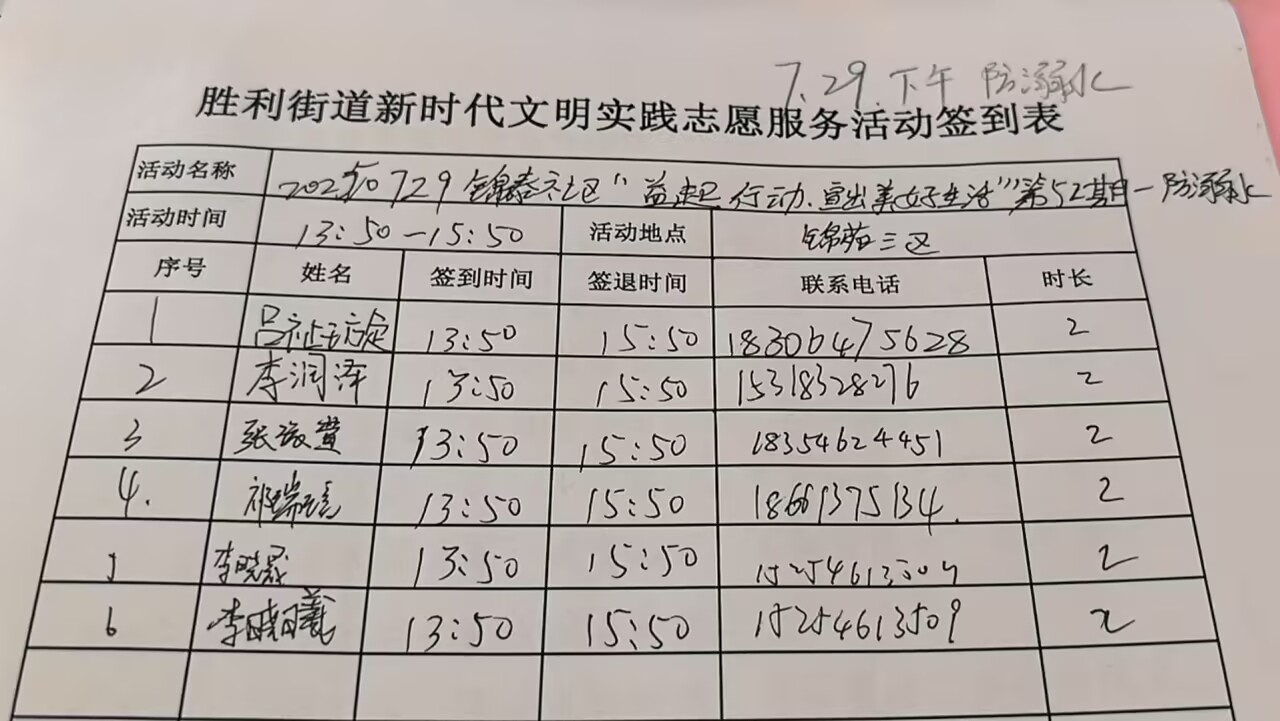 7.29.下午 防溺水
胜利街道新时代文明实践志愿服务活动签到表
活动名称 20250729锦泰社区"益起行动.宣出美好生活"第52期-防溺水
活动时间 13:50-15:50 活动地点 锦苑三区
序号 姓名 签到时间 签退时间 联系电话 时长
1 13:50 15:50 18306475628 2
2 李润泽 13:50 15:50 15318328276 2
3 13:50 15:50 18354624451 2
4. 13:50 15:50 18661375134. 2
5 李晓晟 13:50 15:50 15254613509 2
6 李晓曦 13:50 15:50 15254613509 2